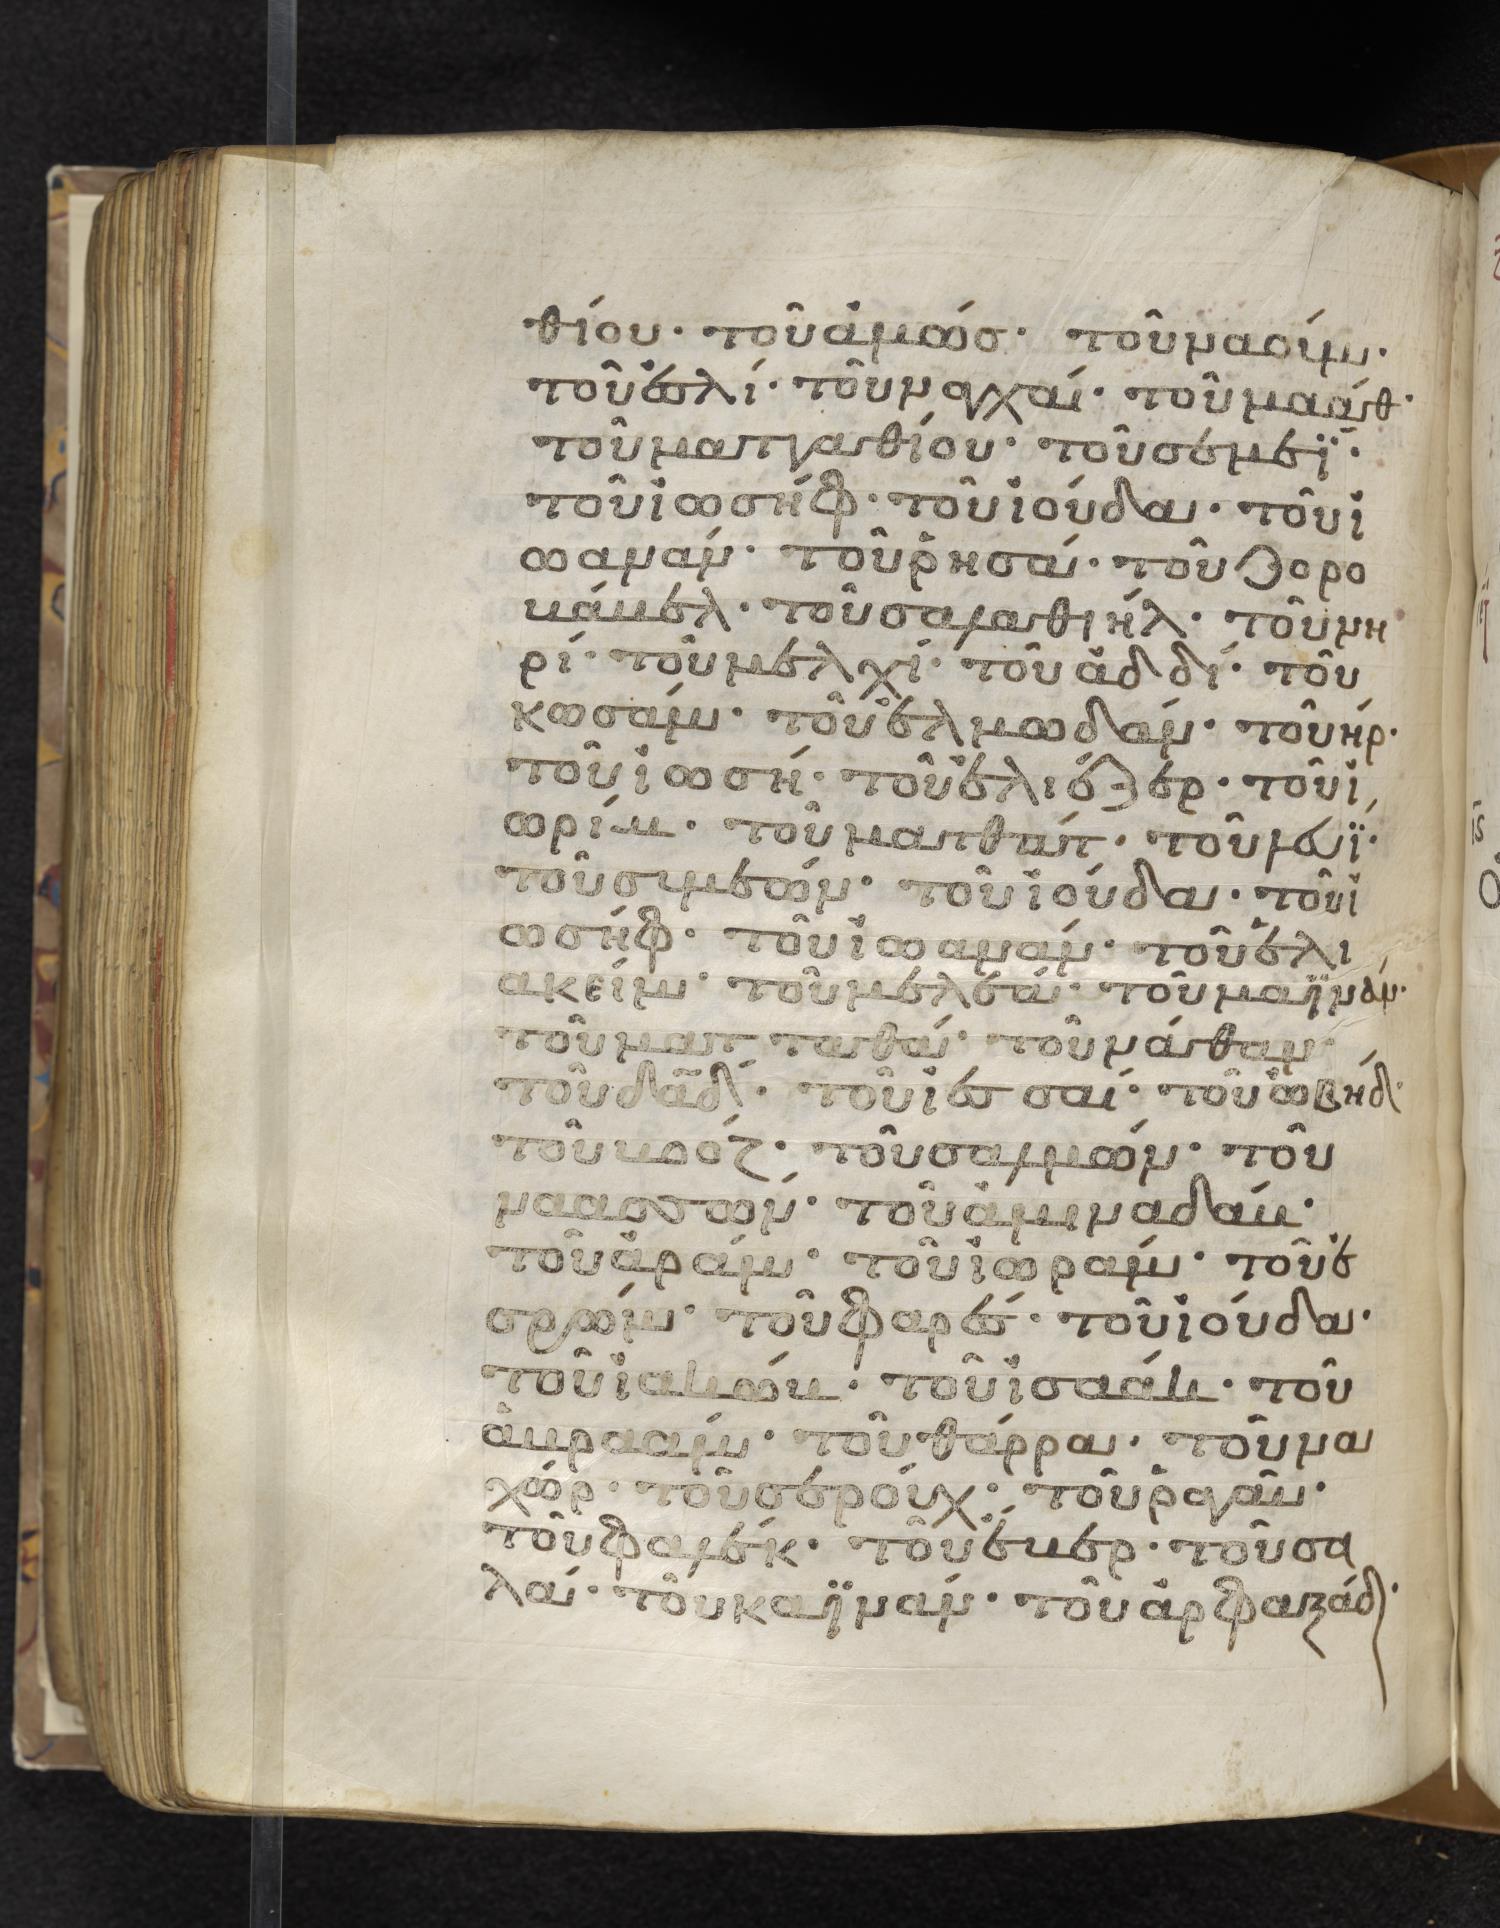 θίου· τοῦ ἀμώσ· τοῦ ναούμ·
τοῦ ἐσλί· τοῦ ναγγαί· τοῦ μαάθ·
τοῦ ματταθίου· τοῦ σεμεῒ·
τοῦ ἰωσήφ· τοῦ ἰούδα· τοῦ ἰ
ωαννάν· τοῦ ῥησά· τοῦ ζορο
βάβελ· τοῦ σαλαθιήλ· τοῦ νη
ρί· τοῦ μελχί· τοῦ ἀδδί· τοῦ
κωσάμ· τοῦ ἐλμωδάμ· τοῦ ήρ·
τοῦ ἰωσή· τοῦ ἐλιέζερ· τοῦ ἰ
ωρίμ· τοῦ ματθάτ· τοῦ λευΐ·
τοῦ συμεών· τοῦ ἰούδα· τοῦ ἰ
ωσήφ· τοῦ ἰωανάν· τοῦ ἐλι
ακείμ· τοῦ μελεά· τοῦ μαϊνάν·
τοῦ ματταθά· τοῦ νάθαν·
τοῦ δα̅δ· τοῦ ἰεσσαί· τοῦ ὠβήδ·
τοῦ βοόζ· τοῦ σαλμών· τοῦ
ναασσών· τοῦ ἀμιναδάβ·
τοῦ ἀράμ· τοῦ ἰωράμ· τοῦ ἐ
σρώμ· τοῦ φαρές· τοῦ ἰούδα·
τοῦ ἰακώβ· τοῦ ἰσαάκ· τοῦ
ἀβραάμ· τοῦ θάρρα· τοῦ να
χώρ· τοῦ σερούχ· τοῦ ῥαγαῦ·
τοῦ φαλέκ· τοῦ ἔβερ· τοῦ σα
λά· τοῦ καϊνάν· τοῦ ἀρφαξάδ·